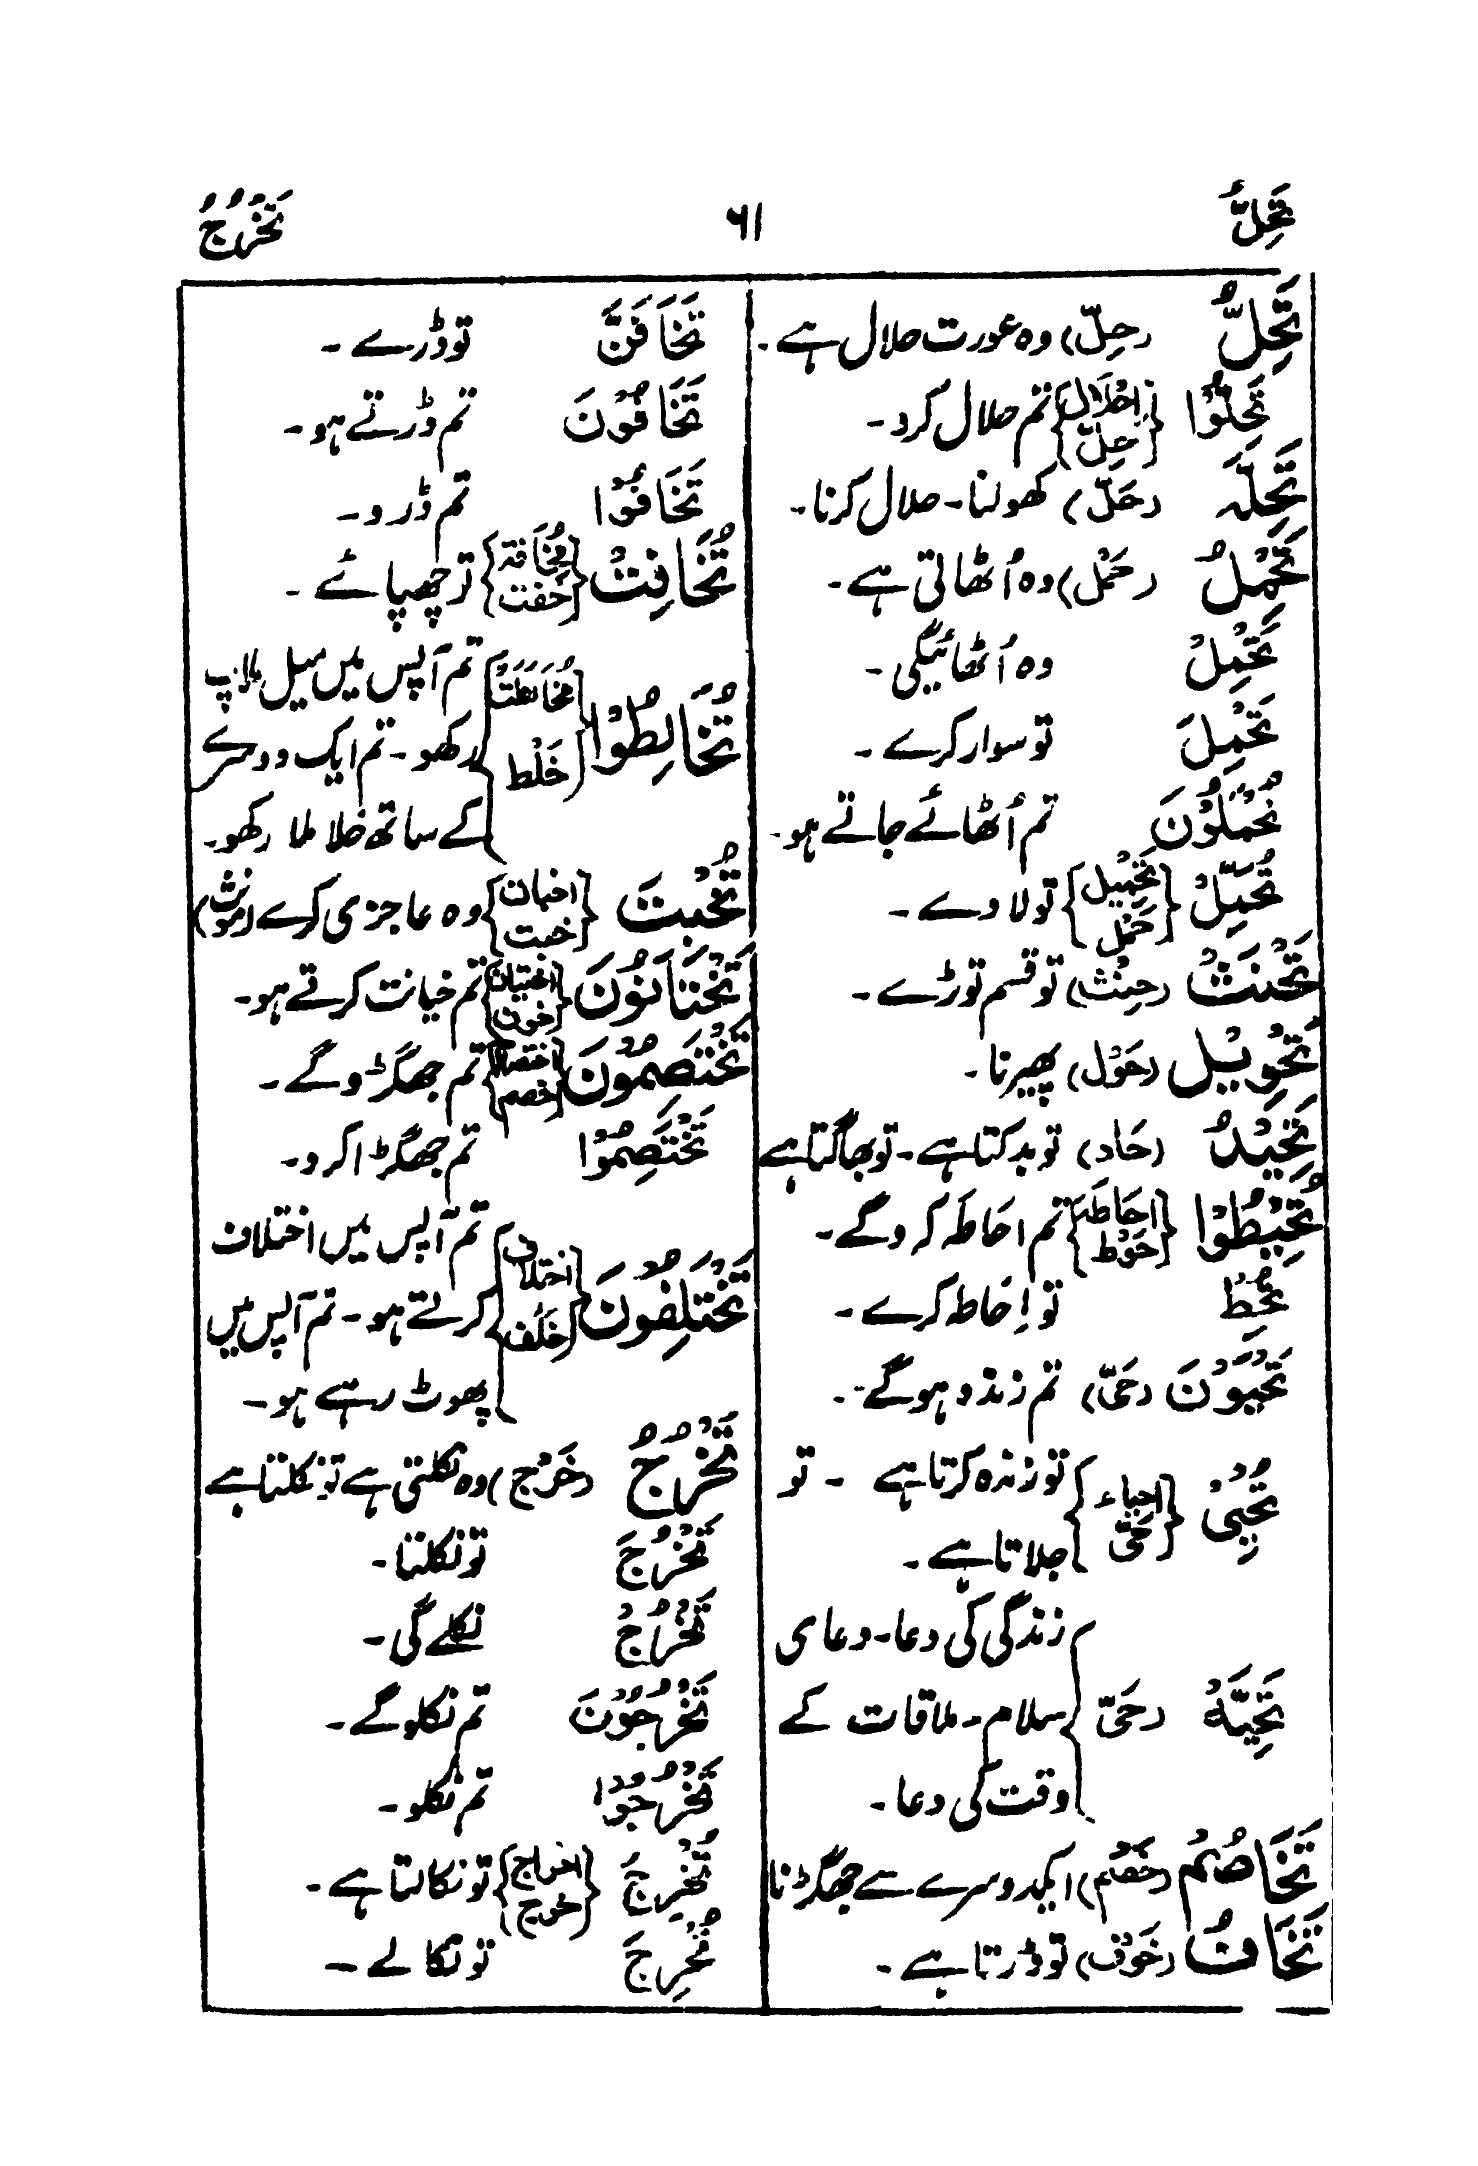 تَحِلُّ ۶۱ تَخْرُجُ
تَحِلُّ (حِلّ) وہ عورت حلال ہے۔
تُحِلُّوْا {اِحْلَال حِلّ} تم حلال کرو۔
تَحِلَّہ (حَلّ) کھولنا۔ حلال کرنا۔
تَحْمِلُ (حَمْل) وہ اُٹھاتی ہے۔
تَحْمِلُ وہ اُٹھائیگی۔
تَحْمِلَ تو سوار کرے۔
تُحْمَلُوْنَ تم اُٹھائے جاتے ہو۔
تُحَمِّلْ {تَحْمِیْل حَمْل} تو لادے۔
تَحْنَثْ (حِنْث) تو قسم توڑے۔
تَحْوِیْل (حَوْل) پھیرنا۔
تَحِیْدُ (حَاد) تو بدکتا ہے۔ تو بھاگتا ہے
تُحِیْطُوْا {اِحَاطَہ حَوْط} تم احاطہ کروگے۔
تُحِطْ تو اِحَاطہ کرے۔
تَحْیَوْنَ (حَیّ) تم زندہ ہوگے۔
تُحْیِیْ {احیاء حَیّ} تو زندہ کرتا ہے ۔ تو
جلاتا ہے۔
زندگی کی دعا۔ دعای
تَحِیَّۃٌ (حَیّ) سلام۔ ملاقات کے
وقت کی دعا۔
تَخَاصُم (خَصْم) ایکدوسرے سے جھگڑنا
تَخَافُ (خَوْف) تو ڈرتا ہے۔
تَخَافَنَّ تو ڈرے۔
تَخَافُوْنَ تم ڈرتے ہو۔
تَخَافُوْا تم ڈرو۔
تُخَافِتْ {مُخَافتۃ خَفت} تو چھپائے۔
تم آپس میں میل ملاپ
تُخَالِطُوْا {مُخَالَطَت خَلْط} رکھو۔ تم ایک دوسرے
کے ساتھ خلا ملا رکھو۔
تُخْبِتَ {اخبات خبت} وہ عاجزی کرے (مونث)
تَخْتَانُوْنَ {اختیان خون} تم خیانت کرتے ہو۔
تَخْتَصِمُوْنَ {اختصام خصم} تم جھگڑوگے۔
تَخْتَصِمُوْا تم جھگڑا کرو۔
تم آپس میں اختلاف
تَخْتَلِفُوْنَ {اختلاف خَلْف} کرتے ہو۔ تم آپس میں
پھوٹ رہے ہو۔
تَخْرُجُ (خَرْج) وہ نکلتی ہے تو نکلتا ہے
تَخْرُجَ تو نکلتا۔
تَخْرُجُ نکلے گی۔
تَخْرُجُوْنَ تم نکلوگے۔
تَخْرُجُوْا تم نکلو۔
تُخْرِجُ {اخراج خرج} تو نکالتا ہے۔
تُخْرِجَ تو نکالے۔